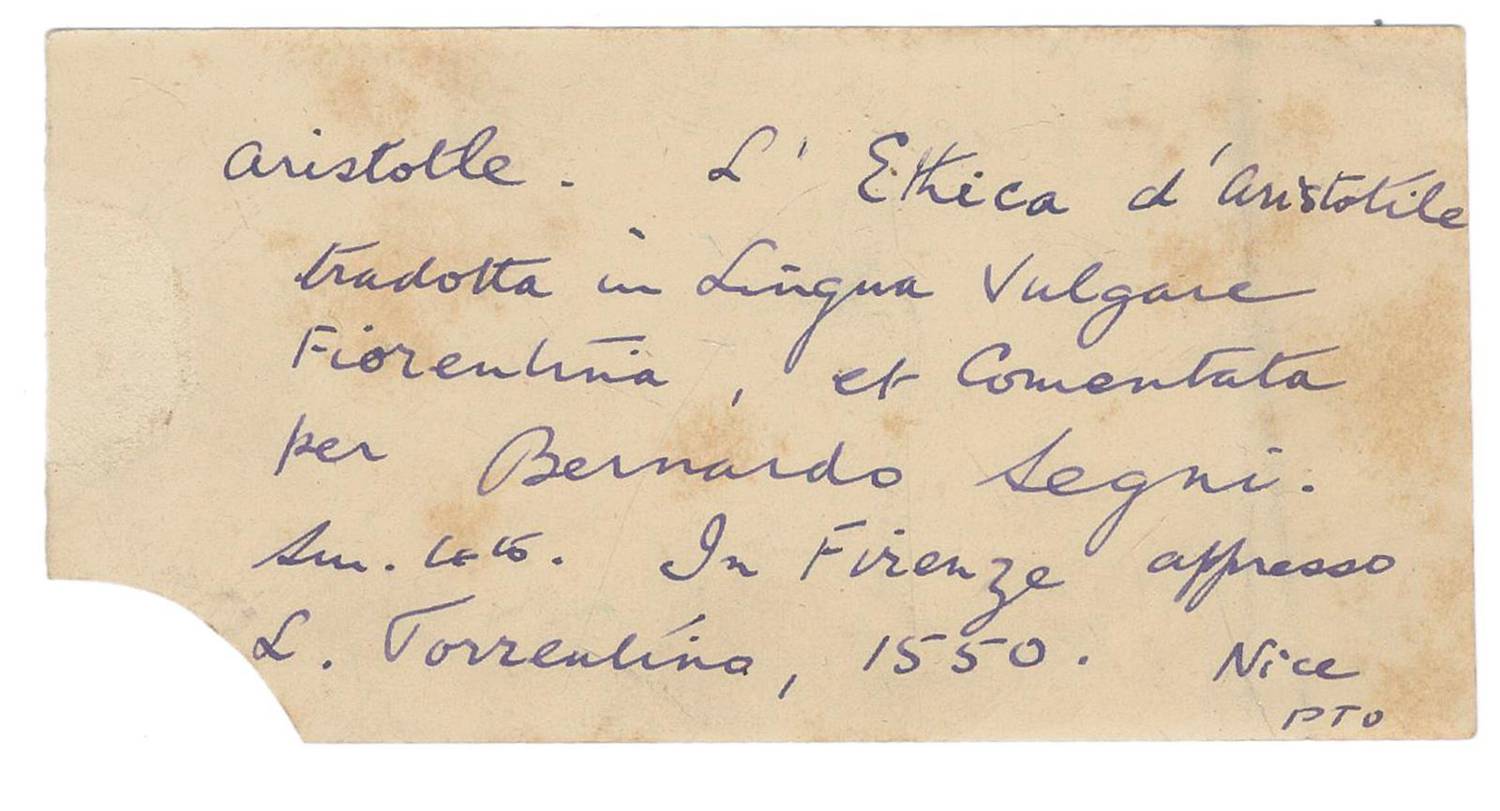 Aristotle. L' Ethica d'Aristotile
tradotta in Lingua Vulgare
Fiorentina, et Comentata
per Bernardo Segni.
Sm. 4to. In Firenze appresso
L. Torrentino, 1550. Nice
PTO